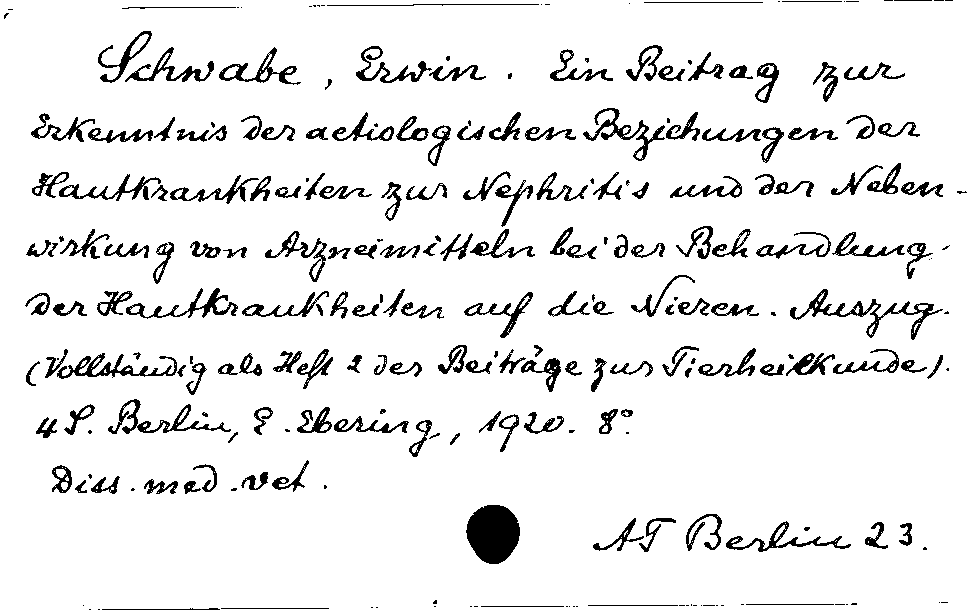 Schwabe, Erwin. Ein Beitrag zur
Erkenntnis der aetiologischen Beziehungen der
Hautkrankheiten zur Nephritis und der Neben-
wirkung von Arzneimitteln bei der Behandlung
der Hautkrankheiten auf die Nieren. Auszug.
(Vollständig als Heft 2 der Beiträge zur Tierheilkunde).
4 S. Berlin, E. Ebering, 1920. 8°.
Diss. med. vet.
AT Berlin 23.